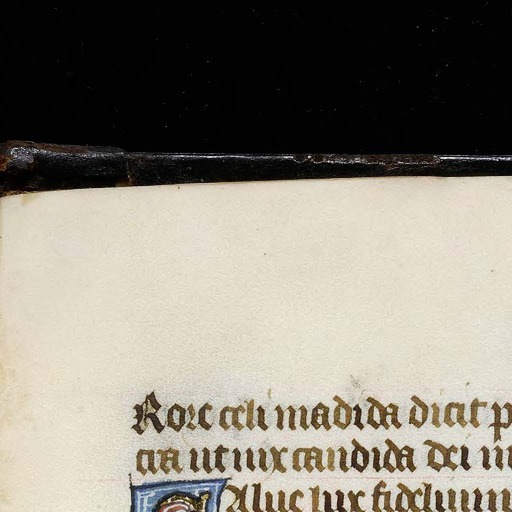 Rore celi madida dicit p
cra ut nix candida dei in
Salue lux fidelium